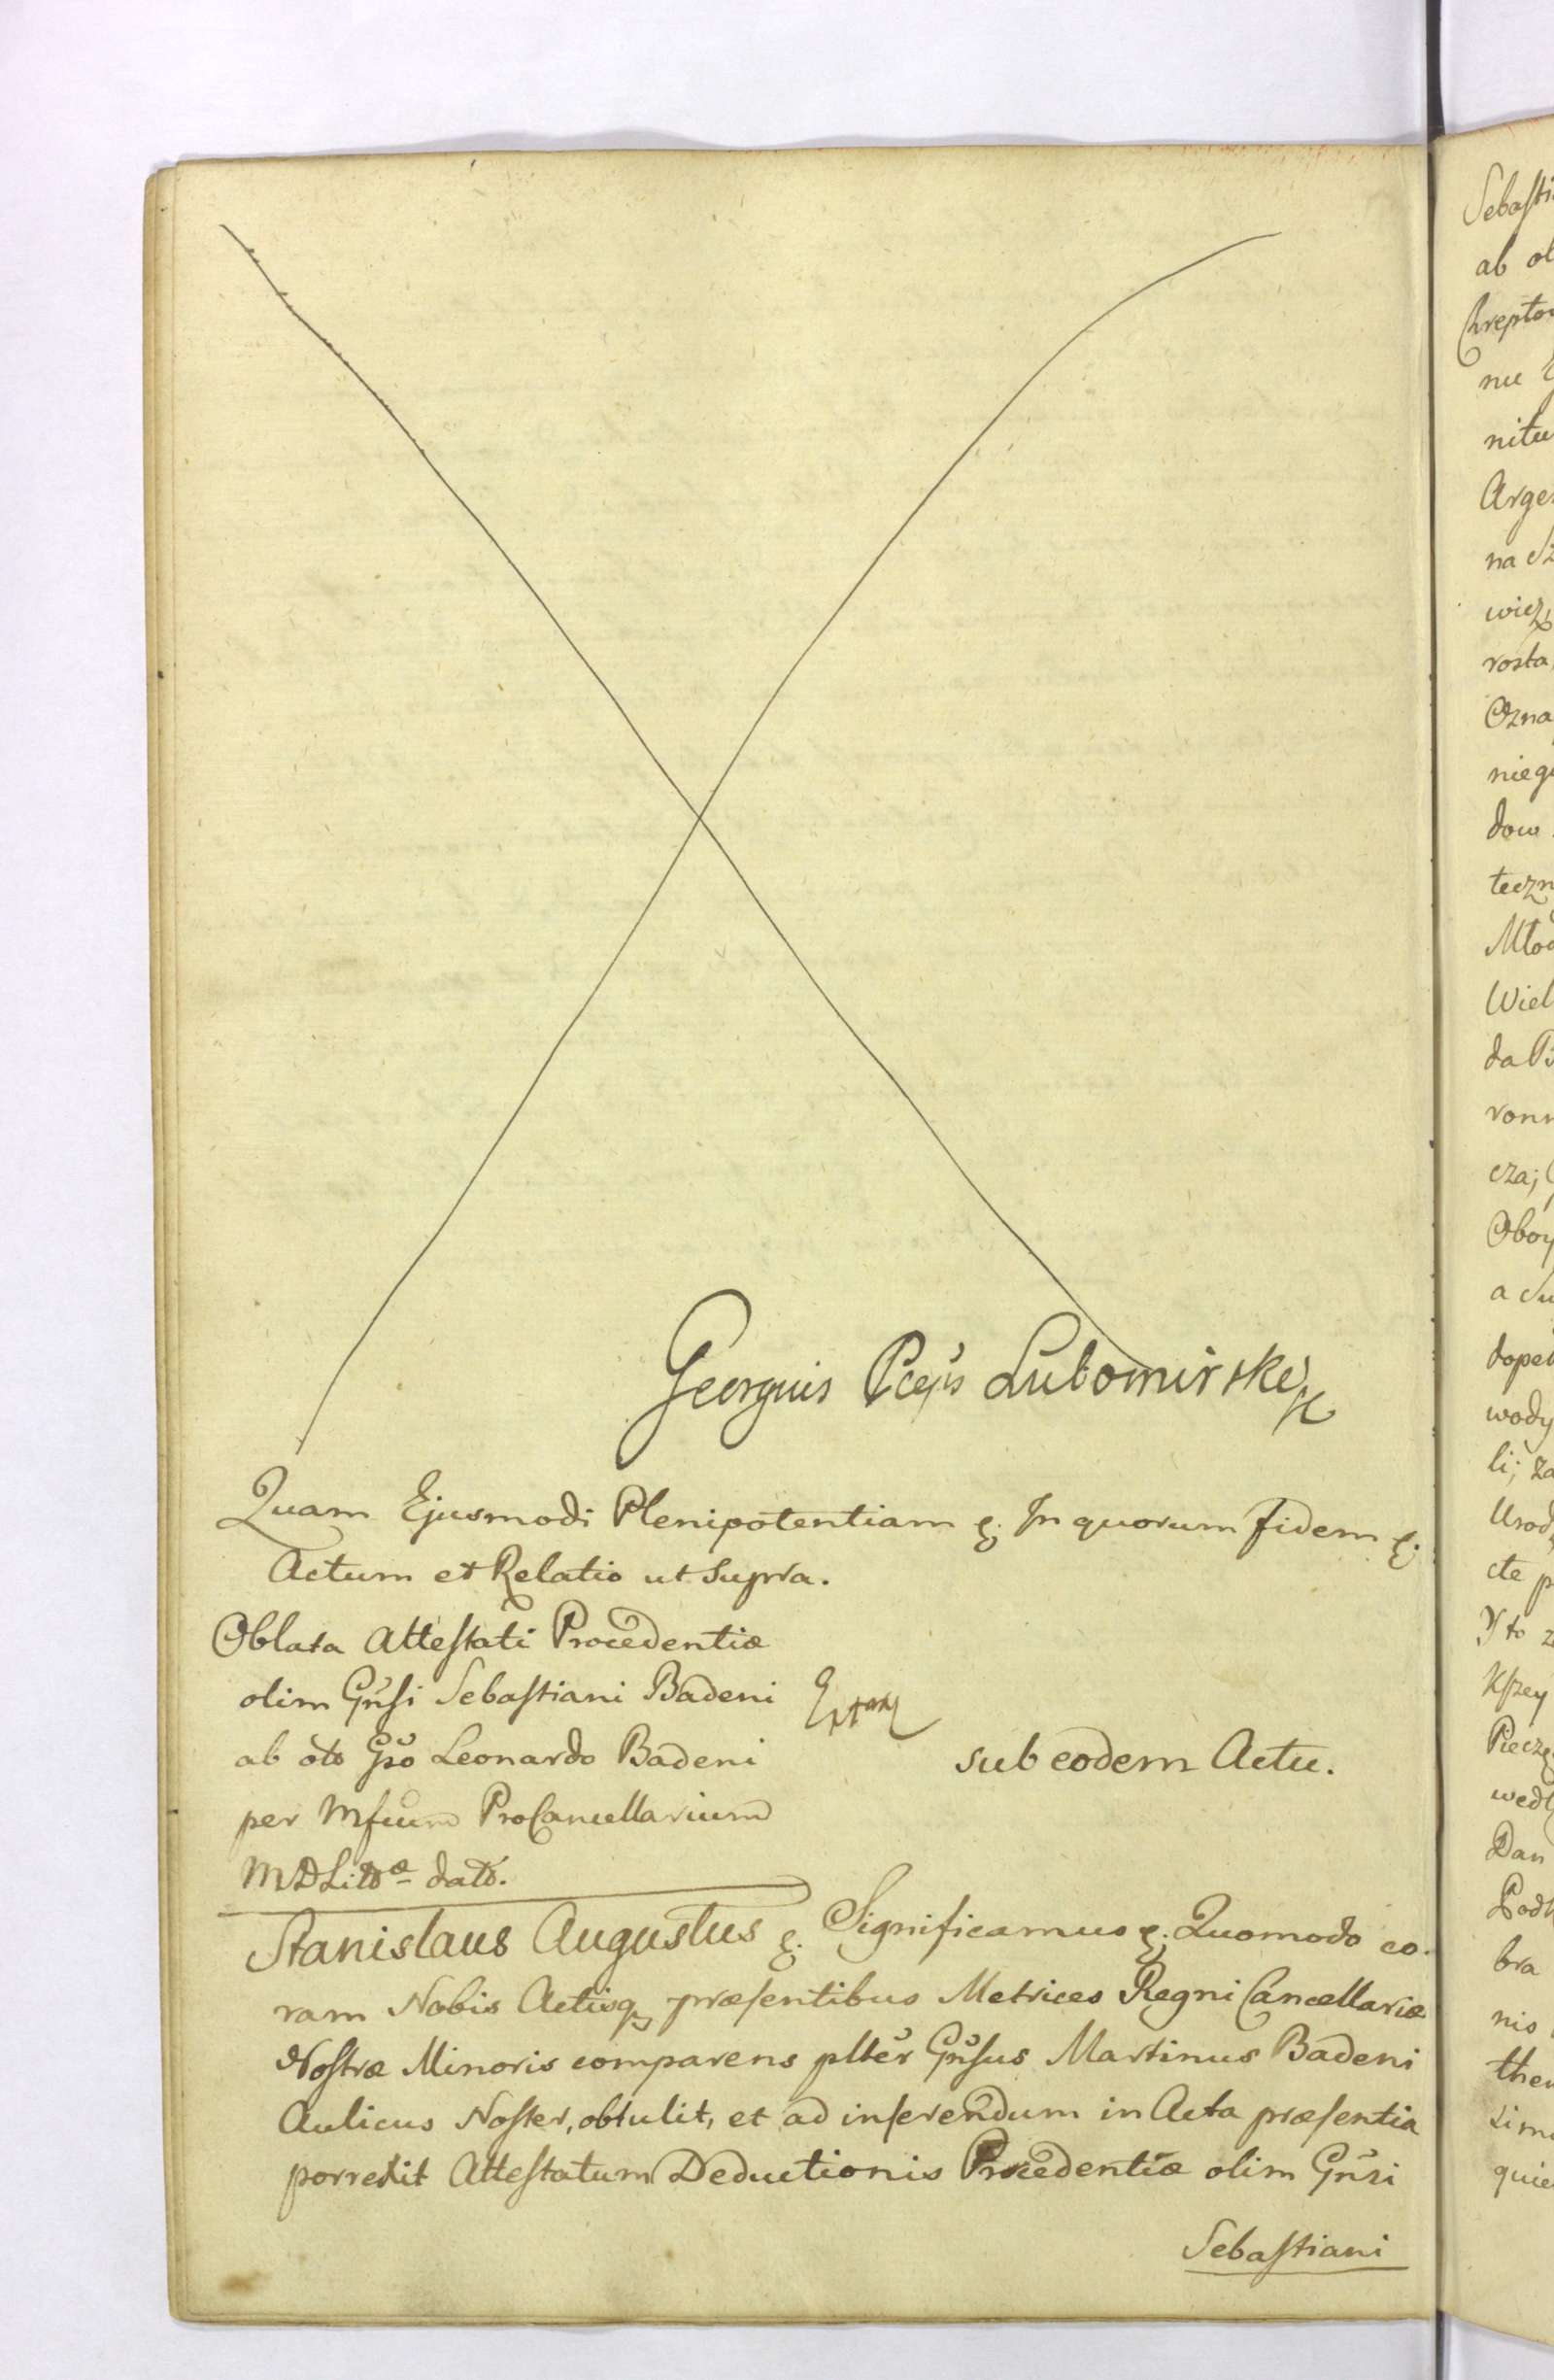 Georgius Pceps Lubomirski
Quam Ejusmodi Plenipotentiam &. In quorum fidem &.
Actum et Relatio ut supra.
Oblata Attestati Procedentiæ
olim Gñsi Sebastiani Badeni
ab oto Gso Leonardo Badeni
sub eodem Actu.
per Mfcum ProCancellarium
MDLitt͠æ dato.
Stanislaus Augustus &. Significamus &. Quomodo co-
ram Nobis Actisq, præsentibus Metrices Regni Cancellariæ
Nostræ Minoris comparens plter Gñsus Martinus Badeni
Aulicus Noster, obtulit, et ad inserendum in Acta præsentia
porrexit Attestatum Deductionis Procedentiæ olim Gñsi
Sebastiani
Sebasti
ab ol
Chrepto
nie
nitu
Arge
na Sz
wicz
rosta
Ozna
niego
dow
teczn
Młod
Wiel
da
ronn
cza;
Oboy
a Su
dopeł
wody
li; za
Urod
cte p
Y to z
Kszey
Pieczę
wedł
Dan
Podk
bra
nis
then
sim
quie